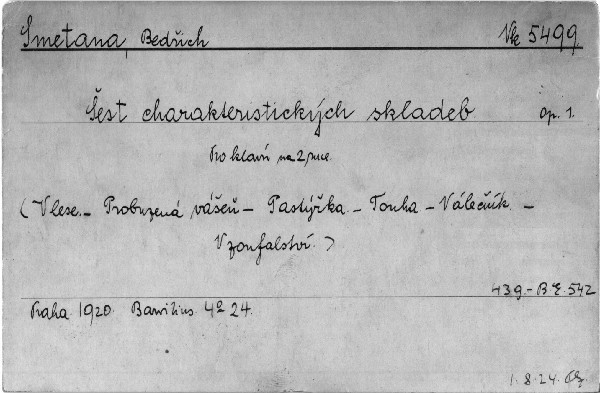 Smetana, Bedřich Vk 5499.
Šest charakteristických skladeb Op. 1.
Pro klavír na 2 ruce.
(V lese. – Probuzená vášeň – Pastýřka. – Touha – Válečník. –
V zoufalství.)
439. – B E. 542
Praha 1920. Barvitius. 4º 24.
1. 8. 24.